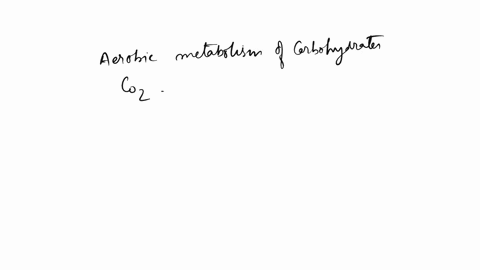 Aerobic metabolism of Carbohydrates
Co2 .